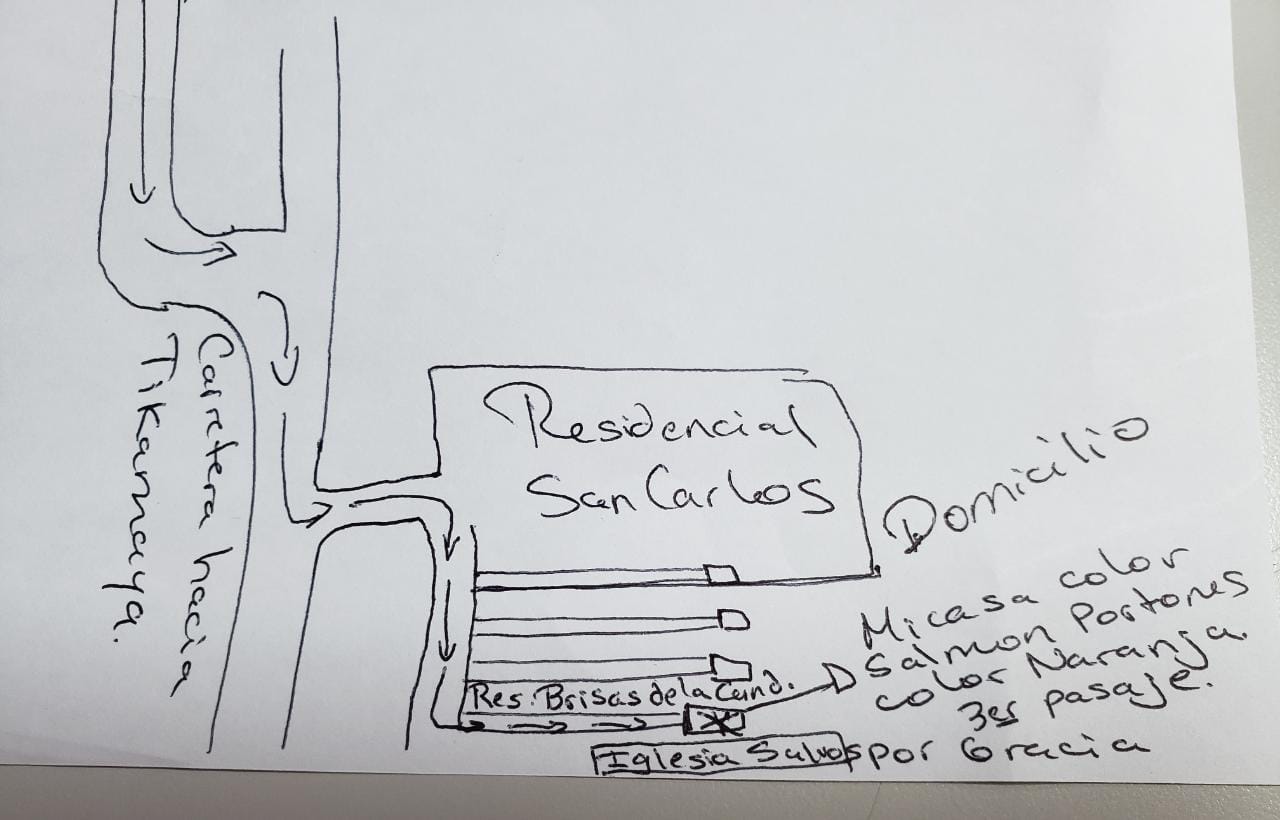 Carretera hacia
Tikamaya.
Residencial
San Carlos
Domicilio
Mi casa color
Salmon Portones
color Naranja.
3er pasaje.
Res. Brisas de la Cand.
Iglesia Salvos por Gracia